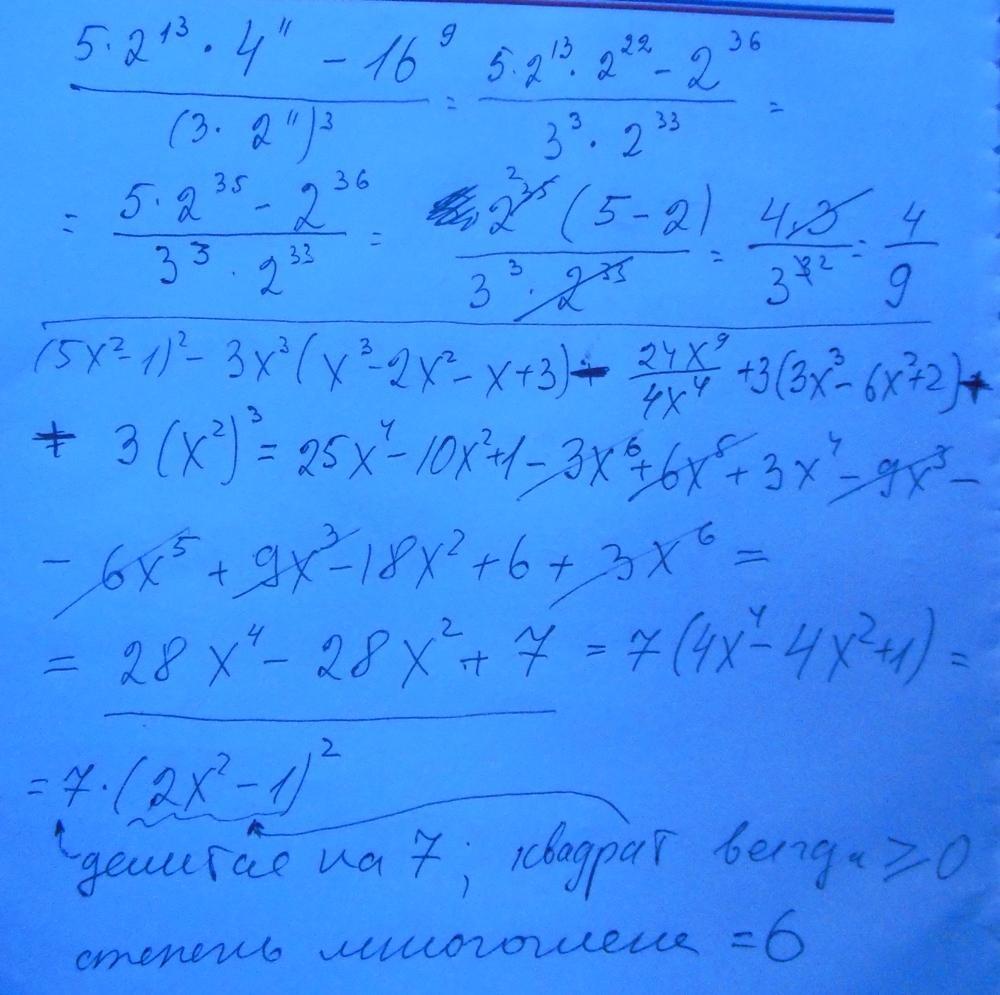 5·2¹³·4¹¹ − 16⁹ / (3·2¹¹)³ = 5·2¹³·2²² − 2³⁶ / 3³·2³³ =
= 5·2³⁵ − 2³⁶ / 3³·2³³ = 2³⁵ ² (5−2) / 3³·2³³ = 4·3 / 3³ ² = 4/9
(5x²−1)² − 3x³(x³−2x²−x+3) − 24x⁹/4x⁴ + 3(3x³−6x²+2) +
+ 3(x²)³ = 25x⁴−10x²+1−3x⁶+6x⁵+3x⁴−9x³−
− 6x⁵ + 9x³−18x²+6 + 3x⁶ =
= 28x⁴ − 28x² + 7 = 7(4x⁴−4x²+1) =
= 7·(2x²−1)²
делится на 7; квадрат всегда ≥ 0
степень многочлена = 6